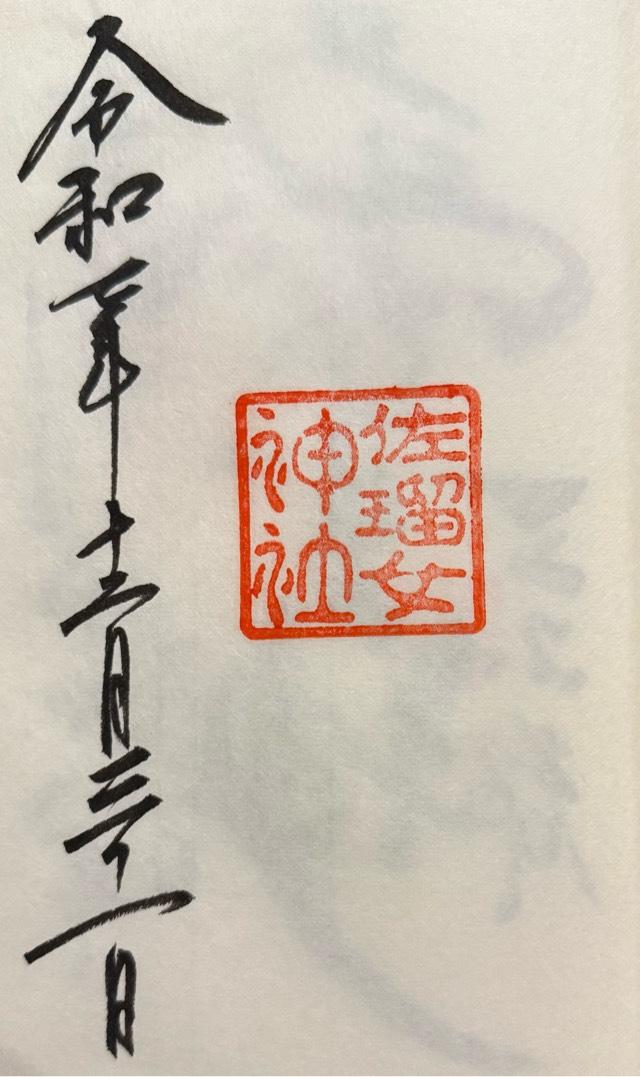 佐瑠女
神社
令和七年十二月三十一日